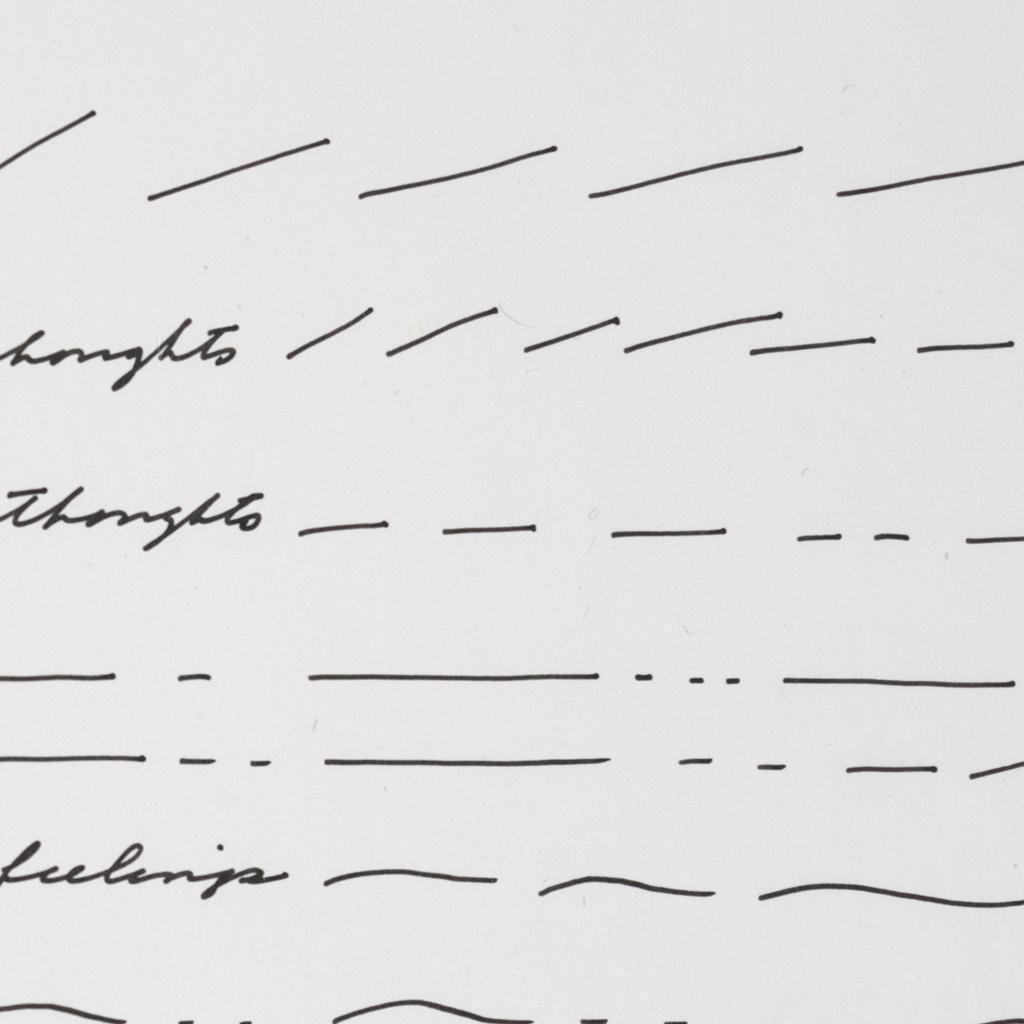 houghts
thoughts
feelings